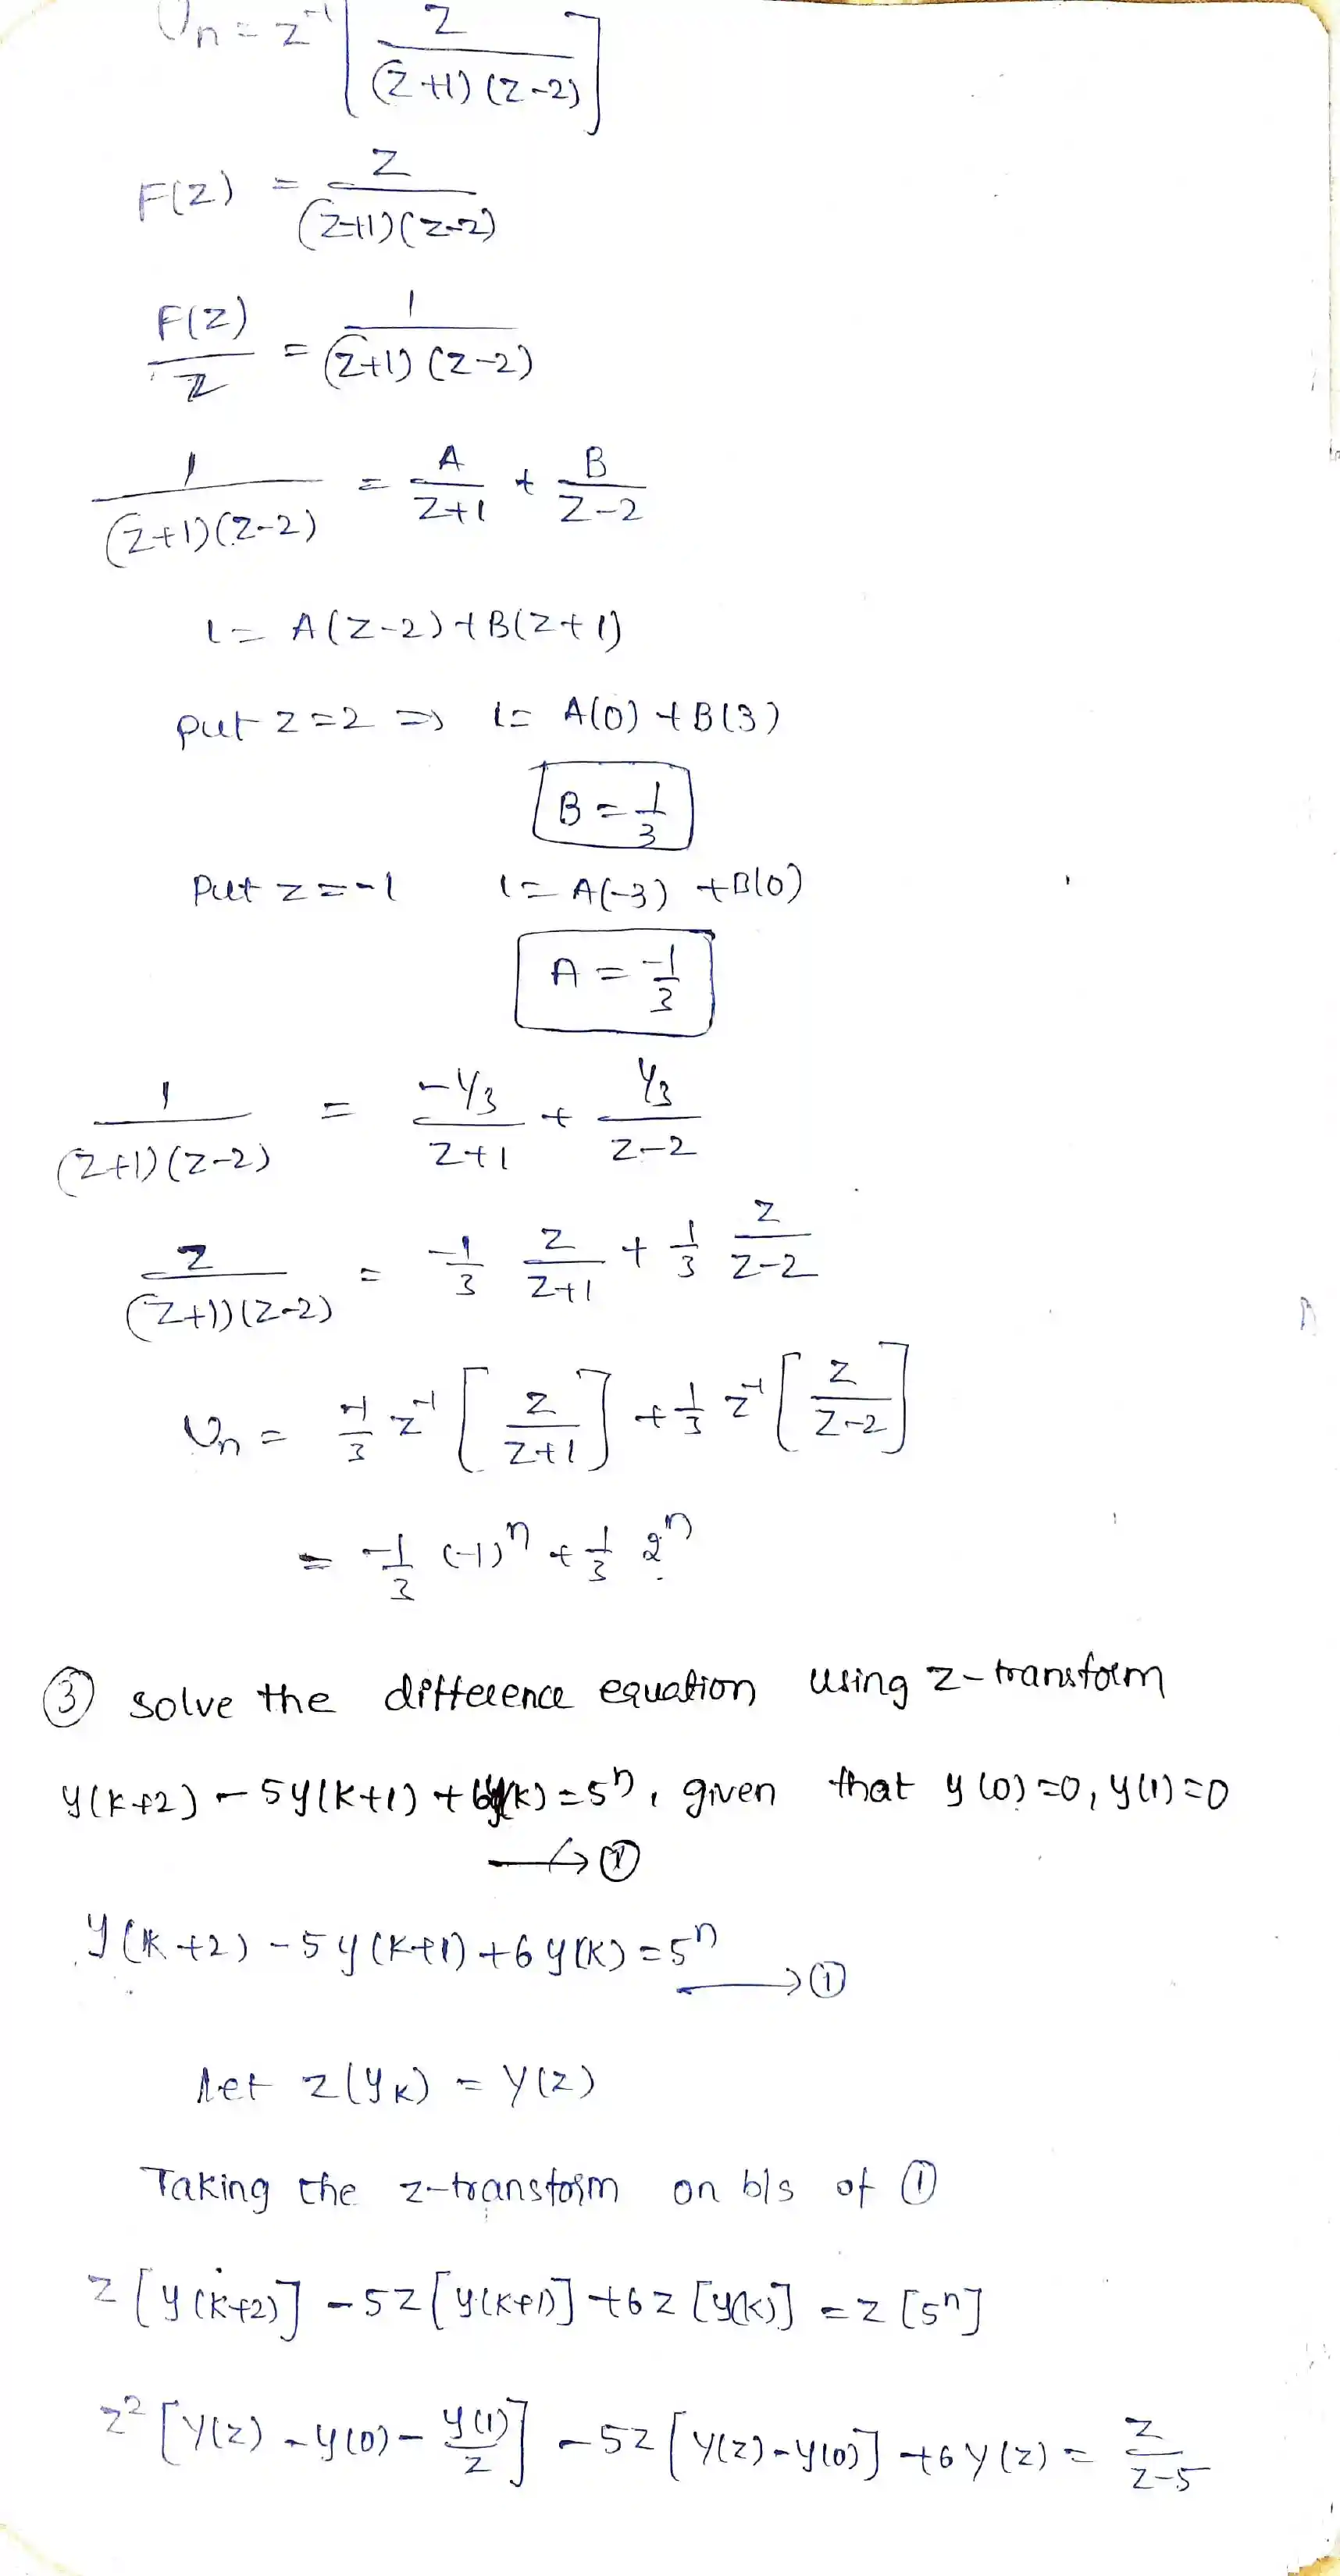 Un = z⁻¹ [ z / (z+1)(z-2) ]
F(z) = z / (z+1)(z-2)
F(z) / z = 1 / (z+1)(z-2)
1 / (z+1)(z-2) = A / z+1 + B / z-2
1 = A(z-2) + B(z+1)
put z=2 => 1 = A(0) + B(3)
B = 1/3
put z=-1 1 = A(-3) + B(0)
A = -1/3
1 / (z+1)(z-2) = -1/3 / z+1 + 1/3 / z-2
z / (z+1)(z-2) = -1/3 z / z+1 + 1/3 z / z-2
Un = -1/3 z⁻¹ [ z / z+1 ] + 1/3 z⁻¹ [ z / z-2 ]
= -1/3 (-1)ⁿ + 1/3 2ⁿ
③ solve the difference equation using z-transform
y(k+2) - 5y(k+1) + 6y(k) = 5ⁿ, given that y(0)=0, y(1)=0
→ ①
y(k+2) - 5y(k+1) + 6y(k) = 5ⁿ → ①
let z(yk) = Y(z)
Taking the z-transform on b/s of ①
z[y(k+2)] - 5z[y(k+1)] + 6z[y(k)] = z[5ⁿ]
z² [Y(z) - y(0) - y(1)/z] - 5z [Y(z) - y(0)] + 6Y(z) = z / z-5